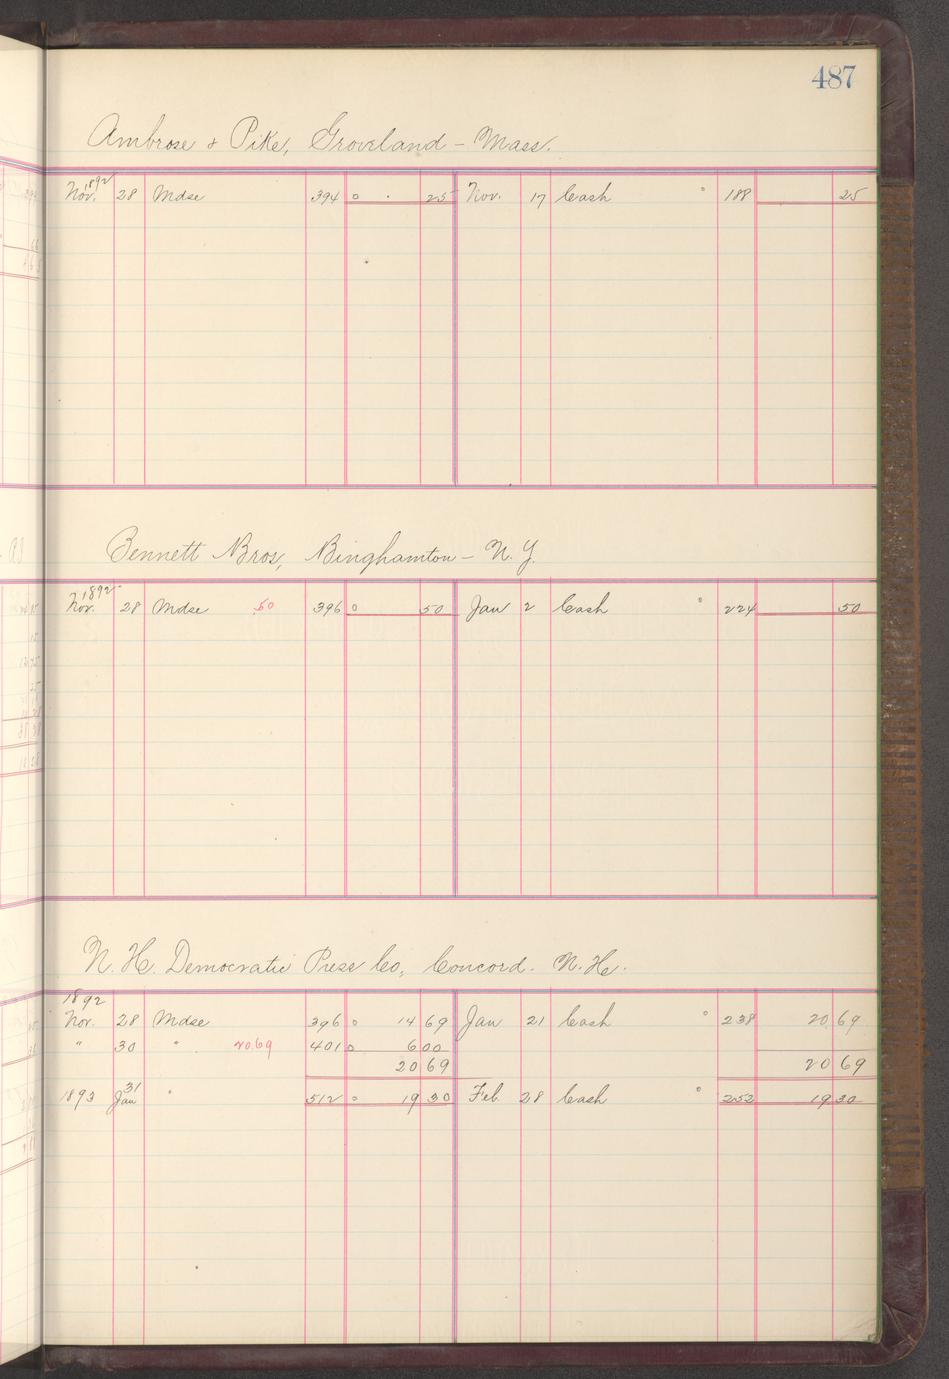 487
Ambrose & Pike, Groveland - Mass.
1892
Nov. 28 Mdse 394 25 Nov. 17 Cash 188 25
Bennett Bros, Binghamton - N.Y.
1892
Nov. 28 Mdse 50 396 50 Jan 2 Cash 224 50
N. H. Democratic Press Co, Concord. N. H.
1892
Nov. 28 Mdse 396 14 69 Jan 21 Cash 238 20 69
" 30 " 20 69 401 6 00
20 69 20 69
1893 Jan 31 " 512 19 30 Feb 28 Cash 252 19 30